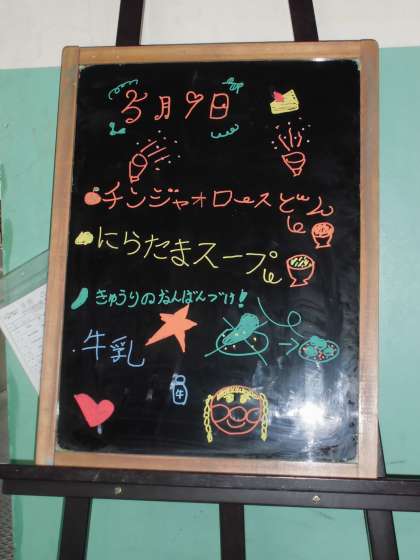 3月9日
チンジャオロースどん
にらたまスープ
きゅうりのなんばんづけ!
牛乳
牛